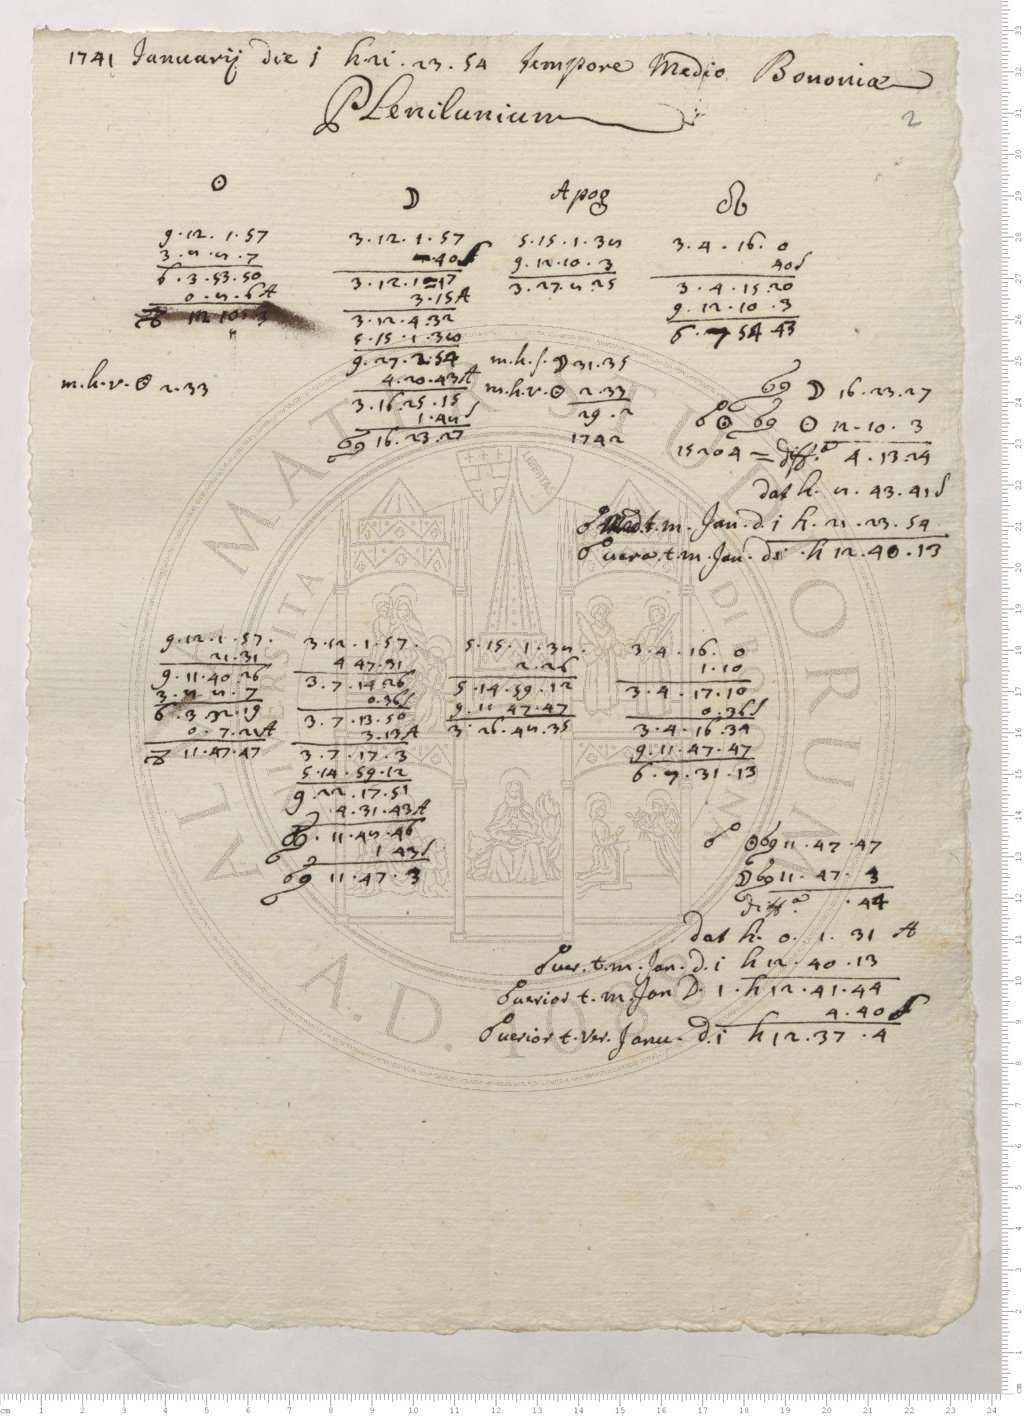 1741 Januarij die i h. 21 . 23 . 54 tempore Medio Bononiæ
PLenilunium
2
☉ ☽ Apog ☊
9 . 12 . 1 . 57 3 . 12 . 1 . 57 5 . 15 . 1 . 35 3 . 4 . 16 . 0
3 . 8 . 8 . 7 40 S 9 . 12 . 10 . 3 40 S
6 . 3 . 53 . 50 3 . 12 . 1 . 17 3 . 27 . 8 . 25 3 . 4 . 15 . 20
0 . 8 . 6 A 3 . 15 A 9 . 12 . 10 . 3
12 10 3 3 . 12 . 4 . 32 6 . 7 54 . 43
5 . 15 . 1 . 35
9 . 27 . 2 . 54 m . h . s . ☽ 31 . 35
m . h . v . ☉ 2 . 33 4 . 20 . 43 A m . h . v . ☉ 2 . 33 ♋ ☽ 16 . 23 . 27
3 . 16 . 25 . 15 29 . 2 ☍ ☉ ♋ ☉ 12 . 10 . 3
1 . 48 S 1742 15204 = diff.ª 4 . 13 . 24
♋ 16 . 23 . 27
dat h . 8 . 43 . 41 S
t . m . Jan . d . i h . 21 . 23 . 54
☍ vera t . m . Jan . d i . h 12 . 40 . 13
9 . 12 . 1 . 57 . 3 . 12 . 1 . 57 . 5 . 15 . 1 . 35 . 3 . 4 . 16 . 0
21 . 31 4 47 . 31 2 . 26 1 . 10
9 . 11 . 40 . 26 3 . 7 . 14 . 26 5 . 14 . 59 . 12 3 . 4 . 17 . 10
3 . 8 8 . 7 0 . 36 S 9 . 11 47 . 47 0 . 36 S
6 . 3 32 . 19 3 . 7 . 13 . 50 3 . 26 . 48 . 35 3 . 4 . 16 . 34
0 . 7 . 21 A 3 . 13 A 9 . 11 . 47 . 47
♑ 11 . 47 . 47 3 . 7 . 17 . 3 6 . 7 . 31 . 13
5 . 14 . 59 . 12
9 . 22 . 17 . 51
4 . 31 . 43 A
11 . 48 . 46
1 43 S
♋ 11 . 47 . 3
☍ ☉ ♋ 11 . 47 . 47
☽ ♋ 11 . 47 . 3
diff.ª . 44
dat h . 0 . 1 . 31 A
☍ ver . t . m . Jan . d . i h 12 . 40 . 13
☍ verior t . m . Jan D . 1 . h 12 . 41 . 44
4 . 40 S
☍ verior t . ver . Janu . d . i h 12 . 37 . 4
ALMA MATER STUDIORUM
UNIVERSITA DI BOLOGNA
A.D. 1088
LIBERTAS